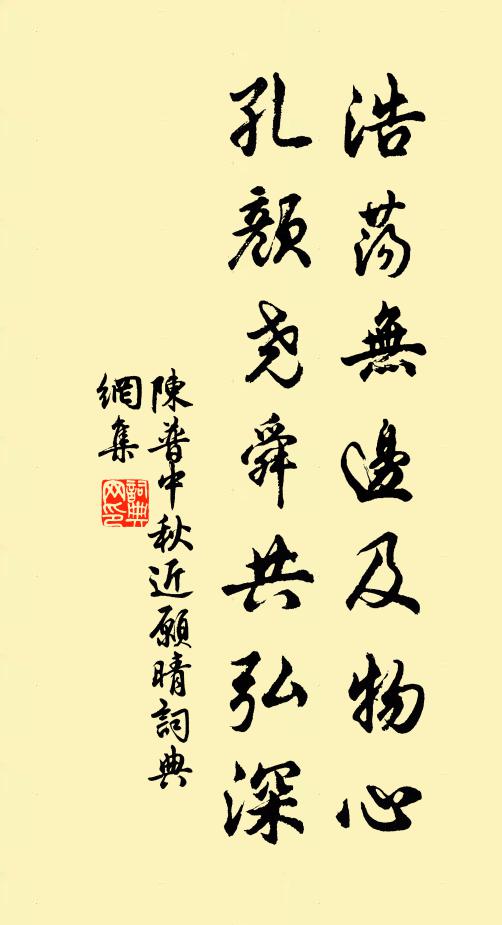 浩蕩無邊及物心
孔顏尧舜共弘深
陳普中秋近願晴詞典
網集
詞典
网印